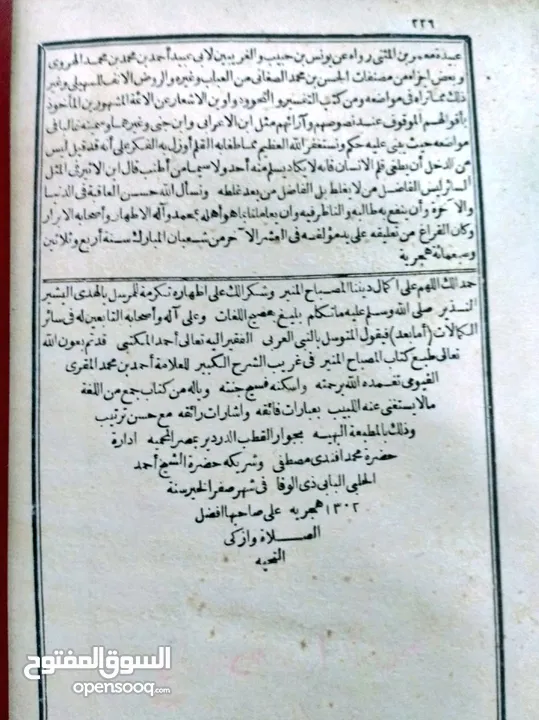 ٢٢٦
عبيدة معمر بن المثنى رواه عن يونس بن حبيب والغريبين لابي عبيد أحمد بن محمد بن محمد الهروى
وبعض اجزاء من مصنفات الحسن بن محمد الصغانى من العباب وغيره والروض الانف للسهيلى وغير
ذلك مما تراه فى مواضعه ومن كتب التفسير والنحو ودواوين الاشعار عن الائمة المشهورين المأخوذ
بأقوالهم الموقوف عند نصوصهم وآرائهم مثل ابن الاعرابى وابن جنى وغيرهما وسميته غالبا فى
مواضعه حيث يبنى عليه حكم ونستغفر الله العظيم مما طغا به القلم أو زل به الفكر على أنه قد قيل ليس
من الدخل أن يطغى قلم الانسان فانه لا يكاد يسلم منه أحد ولا سيما من أطنب قال ابن الاثير فى المثل
السائر ليس الفاضل من لا يغلط بل الفاضل من يعد غلطه ونسأل الله حسن العاقبة فى الدنيا
والآخرة وأن ينفع به طالبه والناظر فيه وان يعاملنا بما هو أهله بمحمد وآله الاطهار وأصحابه الابرار
وكان الفراغ من تعليقه على يد مؤلفه فى العشر الآخر من شعبان المبارك سنة أربع وثلاثين
وسبعمائة هجرية
حمدا لك اللهم على اكمال ديننا المصباح المنير وشكرا لك على اظهاره تكرمة للمرسل بالهدى البشير
النذير صلى الله وسلم عليه ما تكلم بليغ بفصيح اللغات وعلى آله وأصحابه التابعين له فى سائر
الكمالات (أما بعد) فيقول المتوسل بالنبى العربى الفقير اليه تعالى أحمد المكتبى قد تم بعون الله
تعالى طبع كتاب المصباح المنير فى غريب الشرح الكبير للعلامة أحمد بن محمد المقرى
الفيومى تغمده الله برحمته واسكنه فسيح جنته وياله من كتاب جمع من اللغة
مالا يستغنى عنه اللبيب بعبارات فائقه واشارات رائقه مع حسن ترتيب
وذلك بالمطبعة البهيه بجوار القطب الدردير بمصر المحميه ادارة
حضرة محمد افندى مصطفى وشريكه حضرة الشيخ أحمد
الحلبى البابى ذى الوفا فى شهر صفر الخير سنة
١٣٠٢ هجريه على صاحبها افضل
الصلاة وازكى
التحيه
السوق المفتوح
opensooq.com